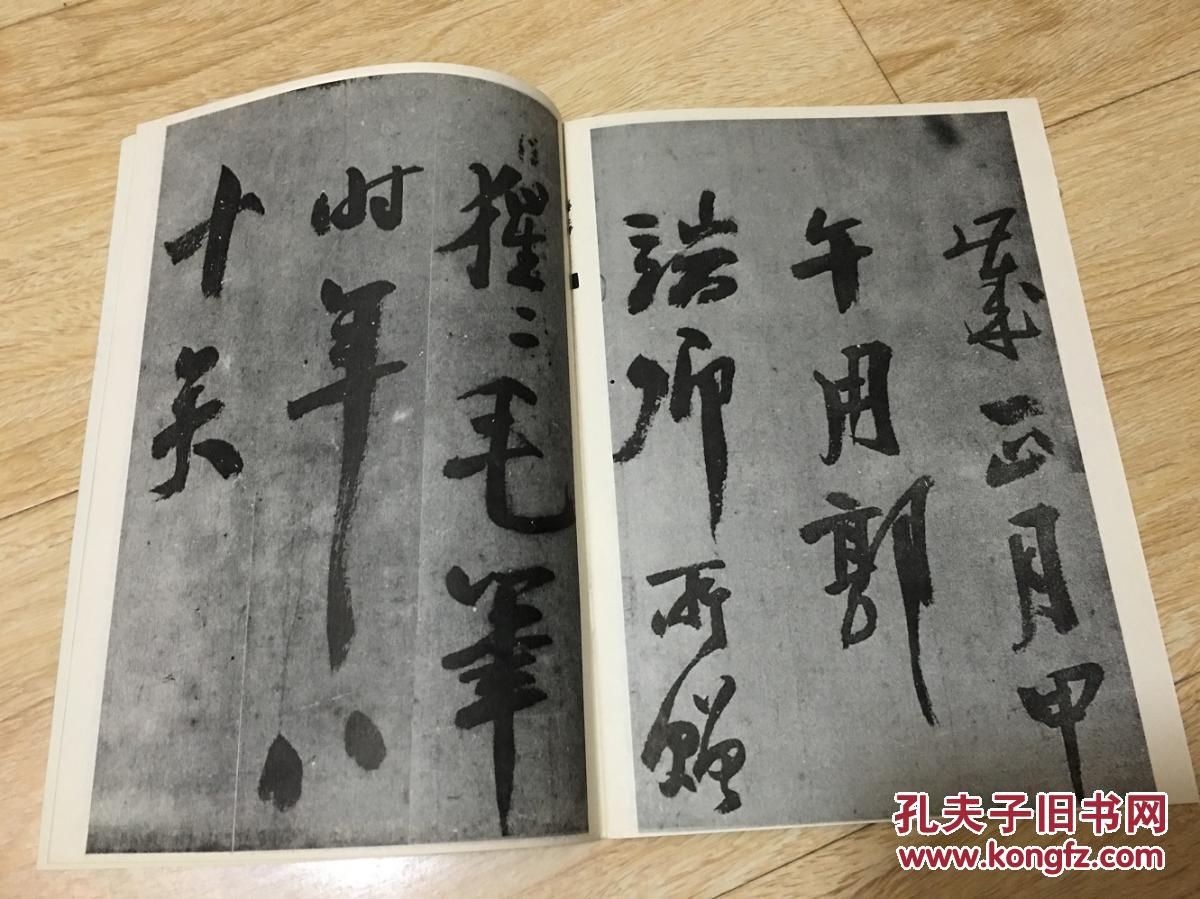 歲正月甲
午用郭
端卿所贈
猩〻毛筆
時年八
十矣
孔夫子旧书网
www.kongfz.com